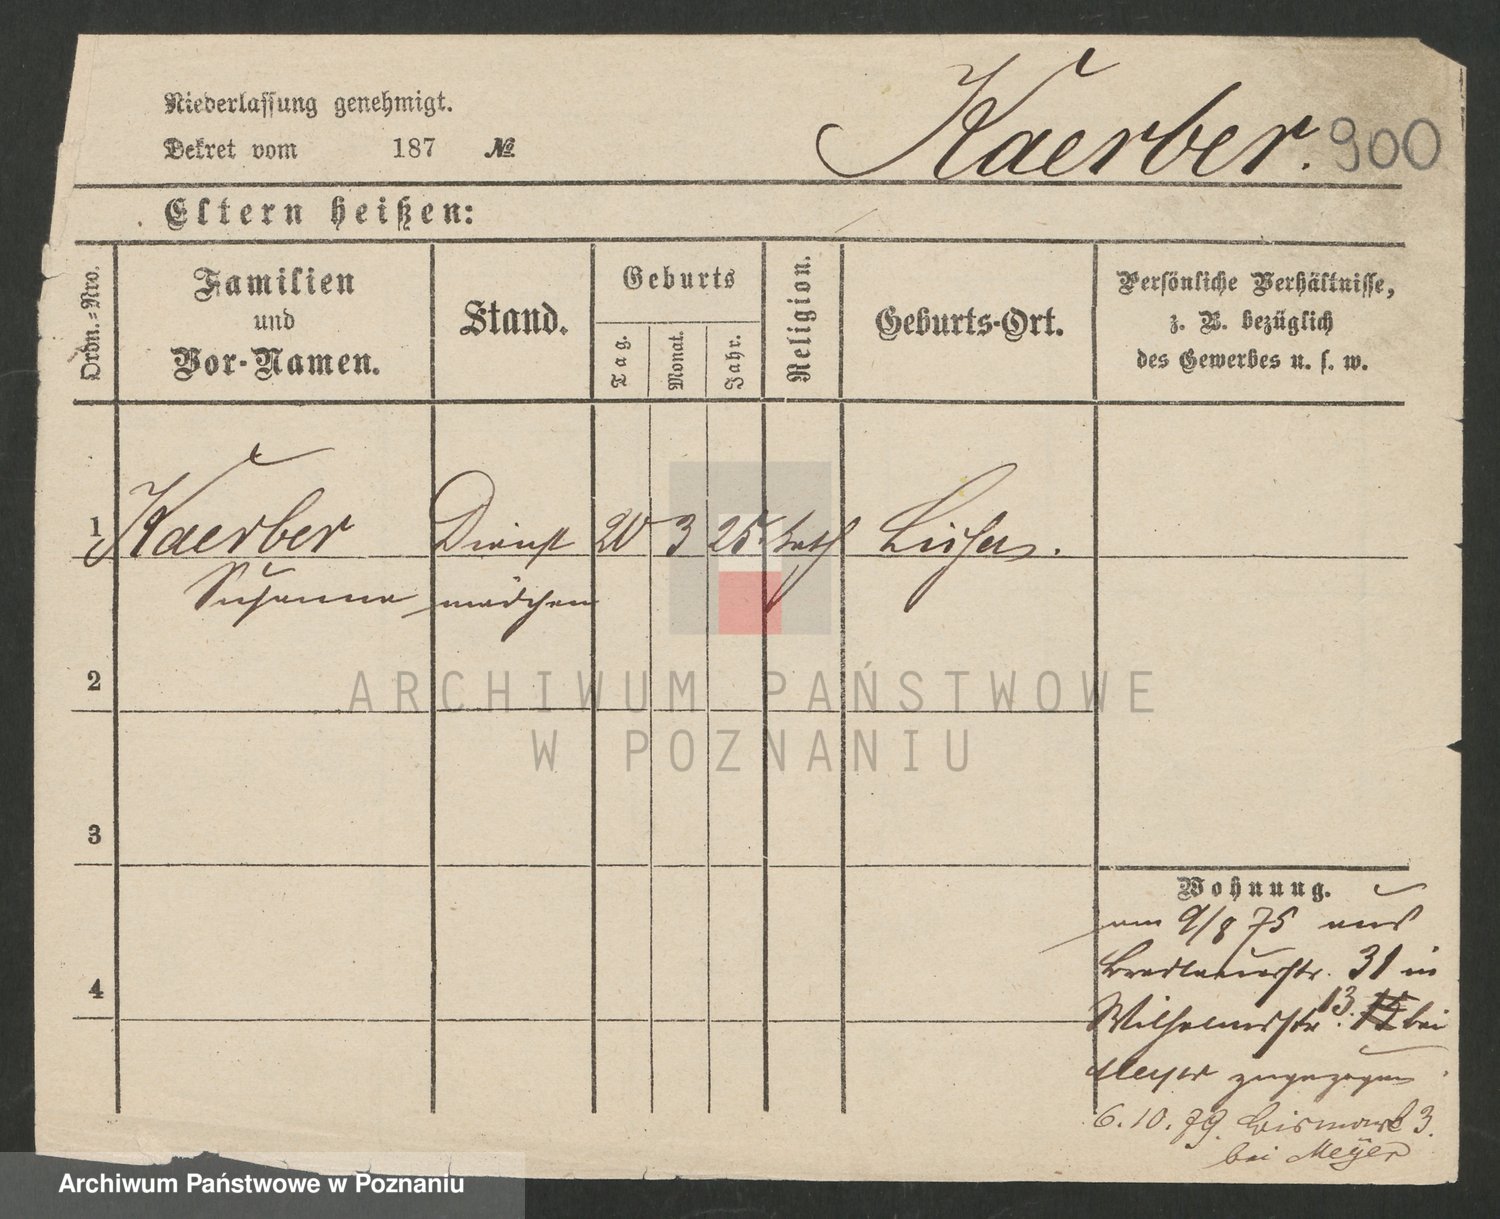 Niederlassung genehmigt.
Dekret vom 187 №
Kaerber. 900
Eltern heißen:
Ordn.-Nro.
Familien
und
Vor-Namen.
Stand.
Geburts
Tag.
Monat.
Jahr.
Religion.
Geburts-Ort.
Persönliche Verhältnisse,
z. B. bezüglich
des Gewerbes u. s. w.
1 Kaerber Dienst 20 3 25 kath
Susanna mädchen
2
ARCHIWUM PAŃSTWOWE
W POZNANIU
3
4
Wohnung.
am 9/8 75 aus
Breslauerstr. 31 in
Wilhelmsstr. 13. bei
Meyer zugezogen
6. 10. 79. Bismark 3.
bei Meyer
Archiwum Państwowe w Poznaniu